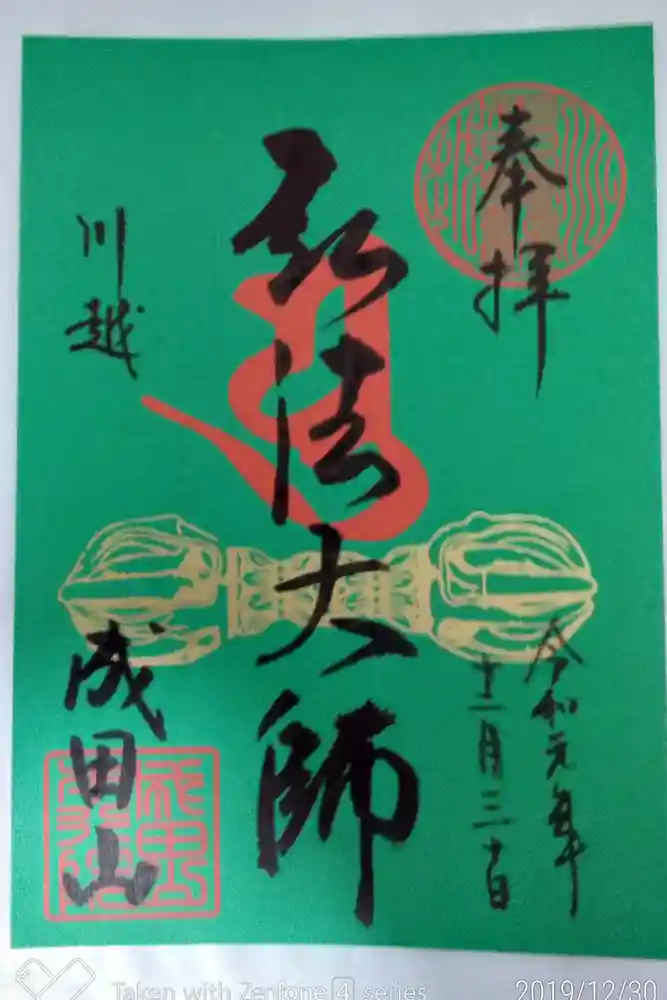 奉拝
令和元年
十二月三十日
弘法大師
川越
成田山
Taken with Zenfone 4 series
2019/12/30